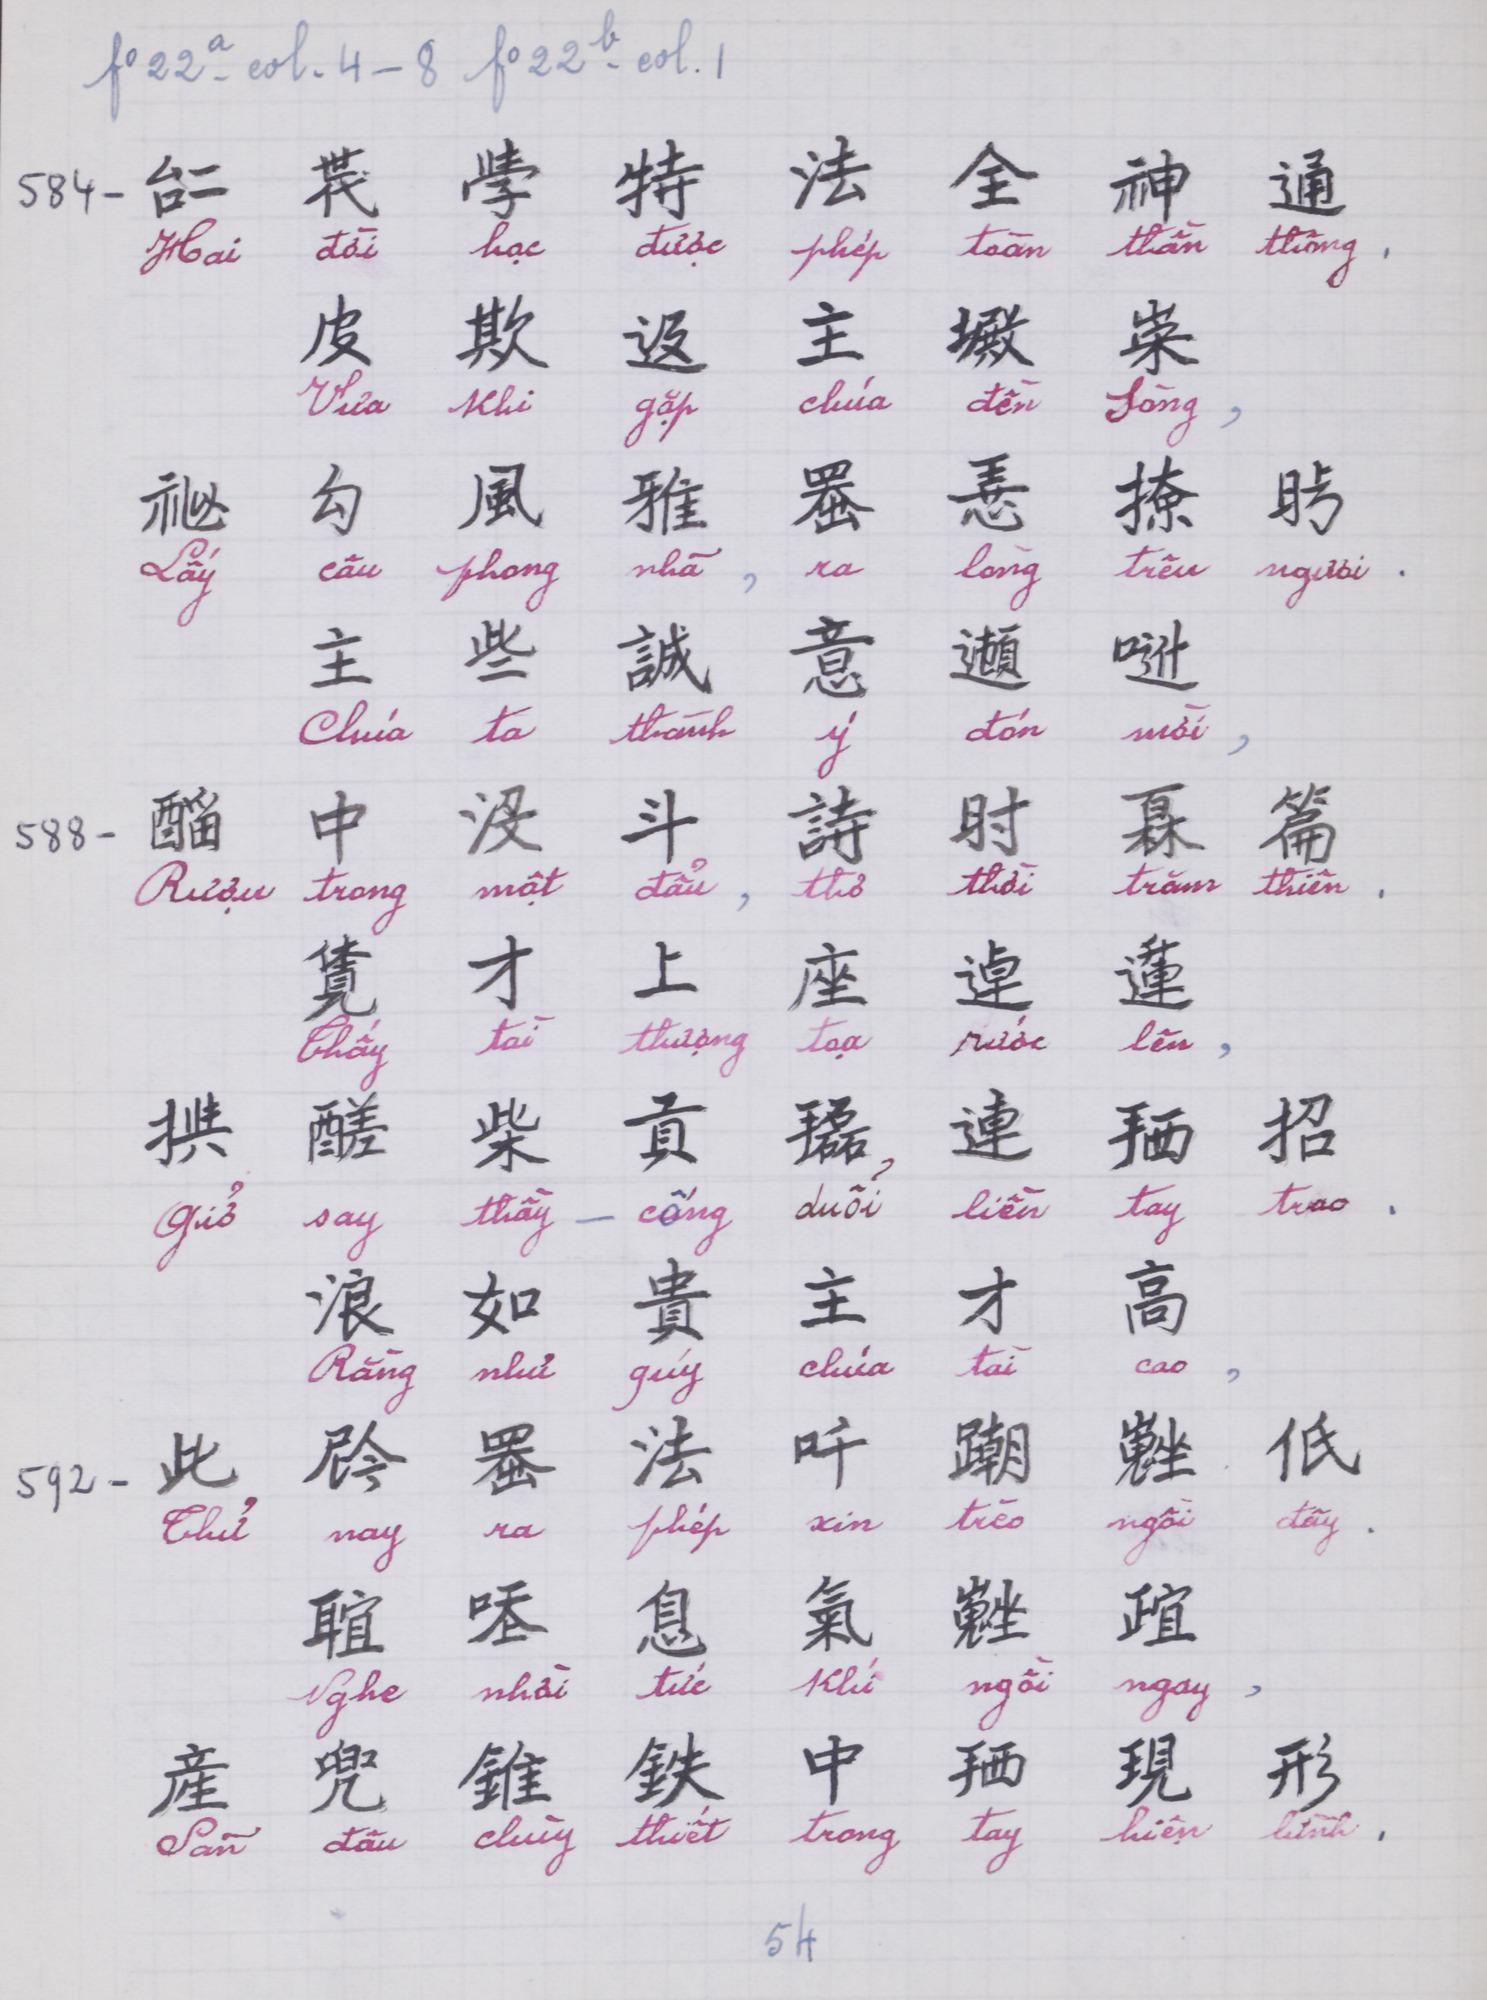 fº 22ª col. 4-8 fº 22ᵇ col. 1
584- 𠄩 茂 學 特 法 全 神 通
Hai đời học được phép toàn thần thông.
皮 欺 返 主 墢 崇
Vừa khi gặp chúa đền Sòng,
祕 勾 風 雅 𦋦 𢚸 撩 𠊛
Lấy câu phong nhã, ra lòng trêu người.
主 些 誠 意 𨘗 𠶆
Chúa ta thành ý đón mời,
588- 𨢇 中 沒 斗 詩 時 𤾓 篇
Rượu trong một đẩu, thơ thời trăm thiên.
覓 才 上 座 逴 𨖲
Thấy tài thượng tọa rước lên,
拱 醝 柴 貢 磊 連 𢬣 招
Giở say thầy-cống duỗi liền tay trao.
浪 如 貴 主 才 高
Rằng như qúy chúa tài cao,
592- 此 𠉞 𦋦 法 吀 𨄂 𡎥 低
Thử nay ra phép xin trèo ngồi đây.
𦖑 𠳒 息 氣 𡎥 𣦍
Nghe nhời tức khí ngồi ngay,
産 兜 錐 鉄 中 𢬣 現 形
Sẵn đâu chùy thiết trong tay hiện hình.
54